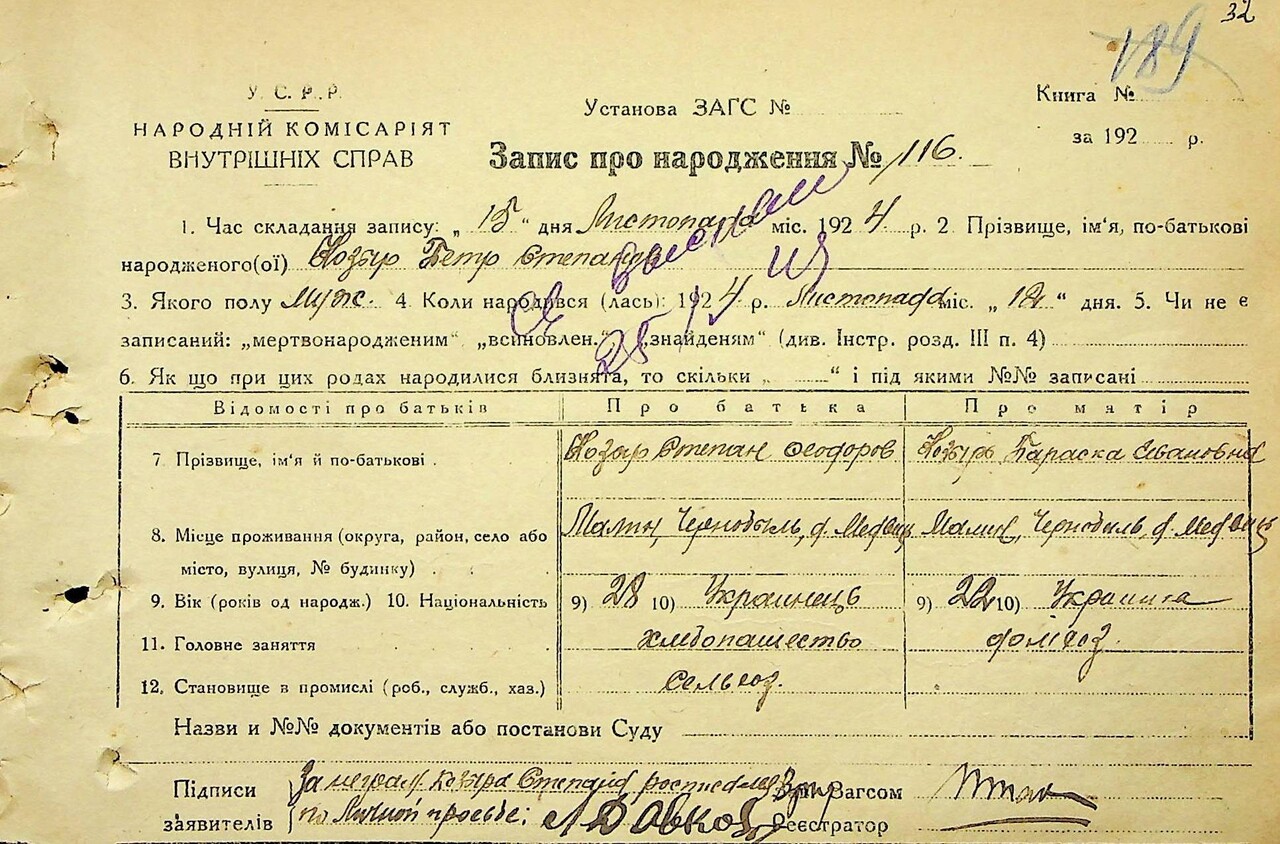 32
189
У. С. Р. Р.
НАРОДНІЙ КОМІСАРІЯТ
ВНУТРІШНІХ СПРАВ
Установа ЗАГС №
Книга №
за 192 р.
Запис про народження № 116.
1. Час складання запису: „ 15 “ дня Листопада міс. 1924 р. 2 Прізвище, ім'я, по-батькові
народженого(ої) Козыр Петр Степанов
3. Якого полу Муж. 4. Коли народився (лась): 1924 р. Листопада міс. „ 12 “ дня. 5. Чи не є
записаний: „мертвонародженим“ „всиновлен.“ „знайденям“ (див. Інстр. розд. III п. 4)
6. Як що при цих родах народилися близнята, то скільки „ “ і під якими №№ записані
Відомості про батьків Про батька Про матір
7 Прізвище, ім'я й по-батькові . Козыр Степан Феодоров Козырь Параска Ивановна
8. Місце проживання (округа, район, село або Малин, Чернобыль, Малин, Чернобыль,
місто, вулиця, № будинку) .
9. Вік (років од народж.) 10. Національність 9) 28 10) Украинець 9) 22 10) Украинка
11. Головне заняття хлебопашество домхоз.
12. Становище в промислі (роб., служб., хаз.) сельхоз.
Назви и №№ документів або постанови Суду
Підписи За неграм. Козыра Степана росписался Загсом
заявителів по личной просьбе: Реєстратор